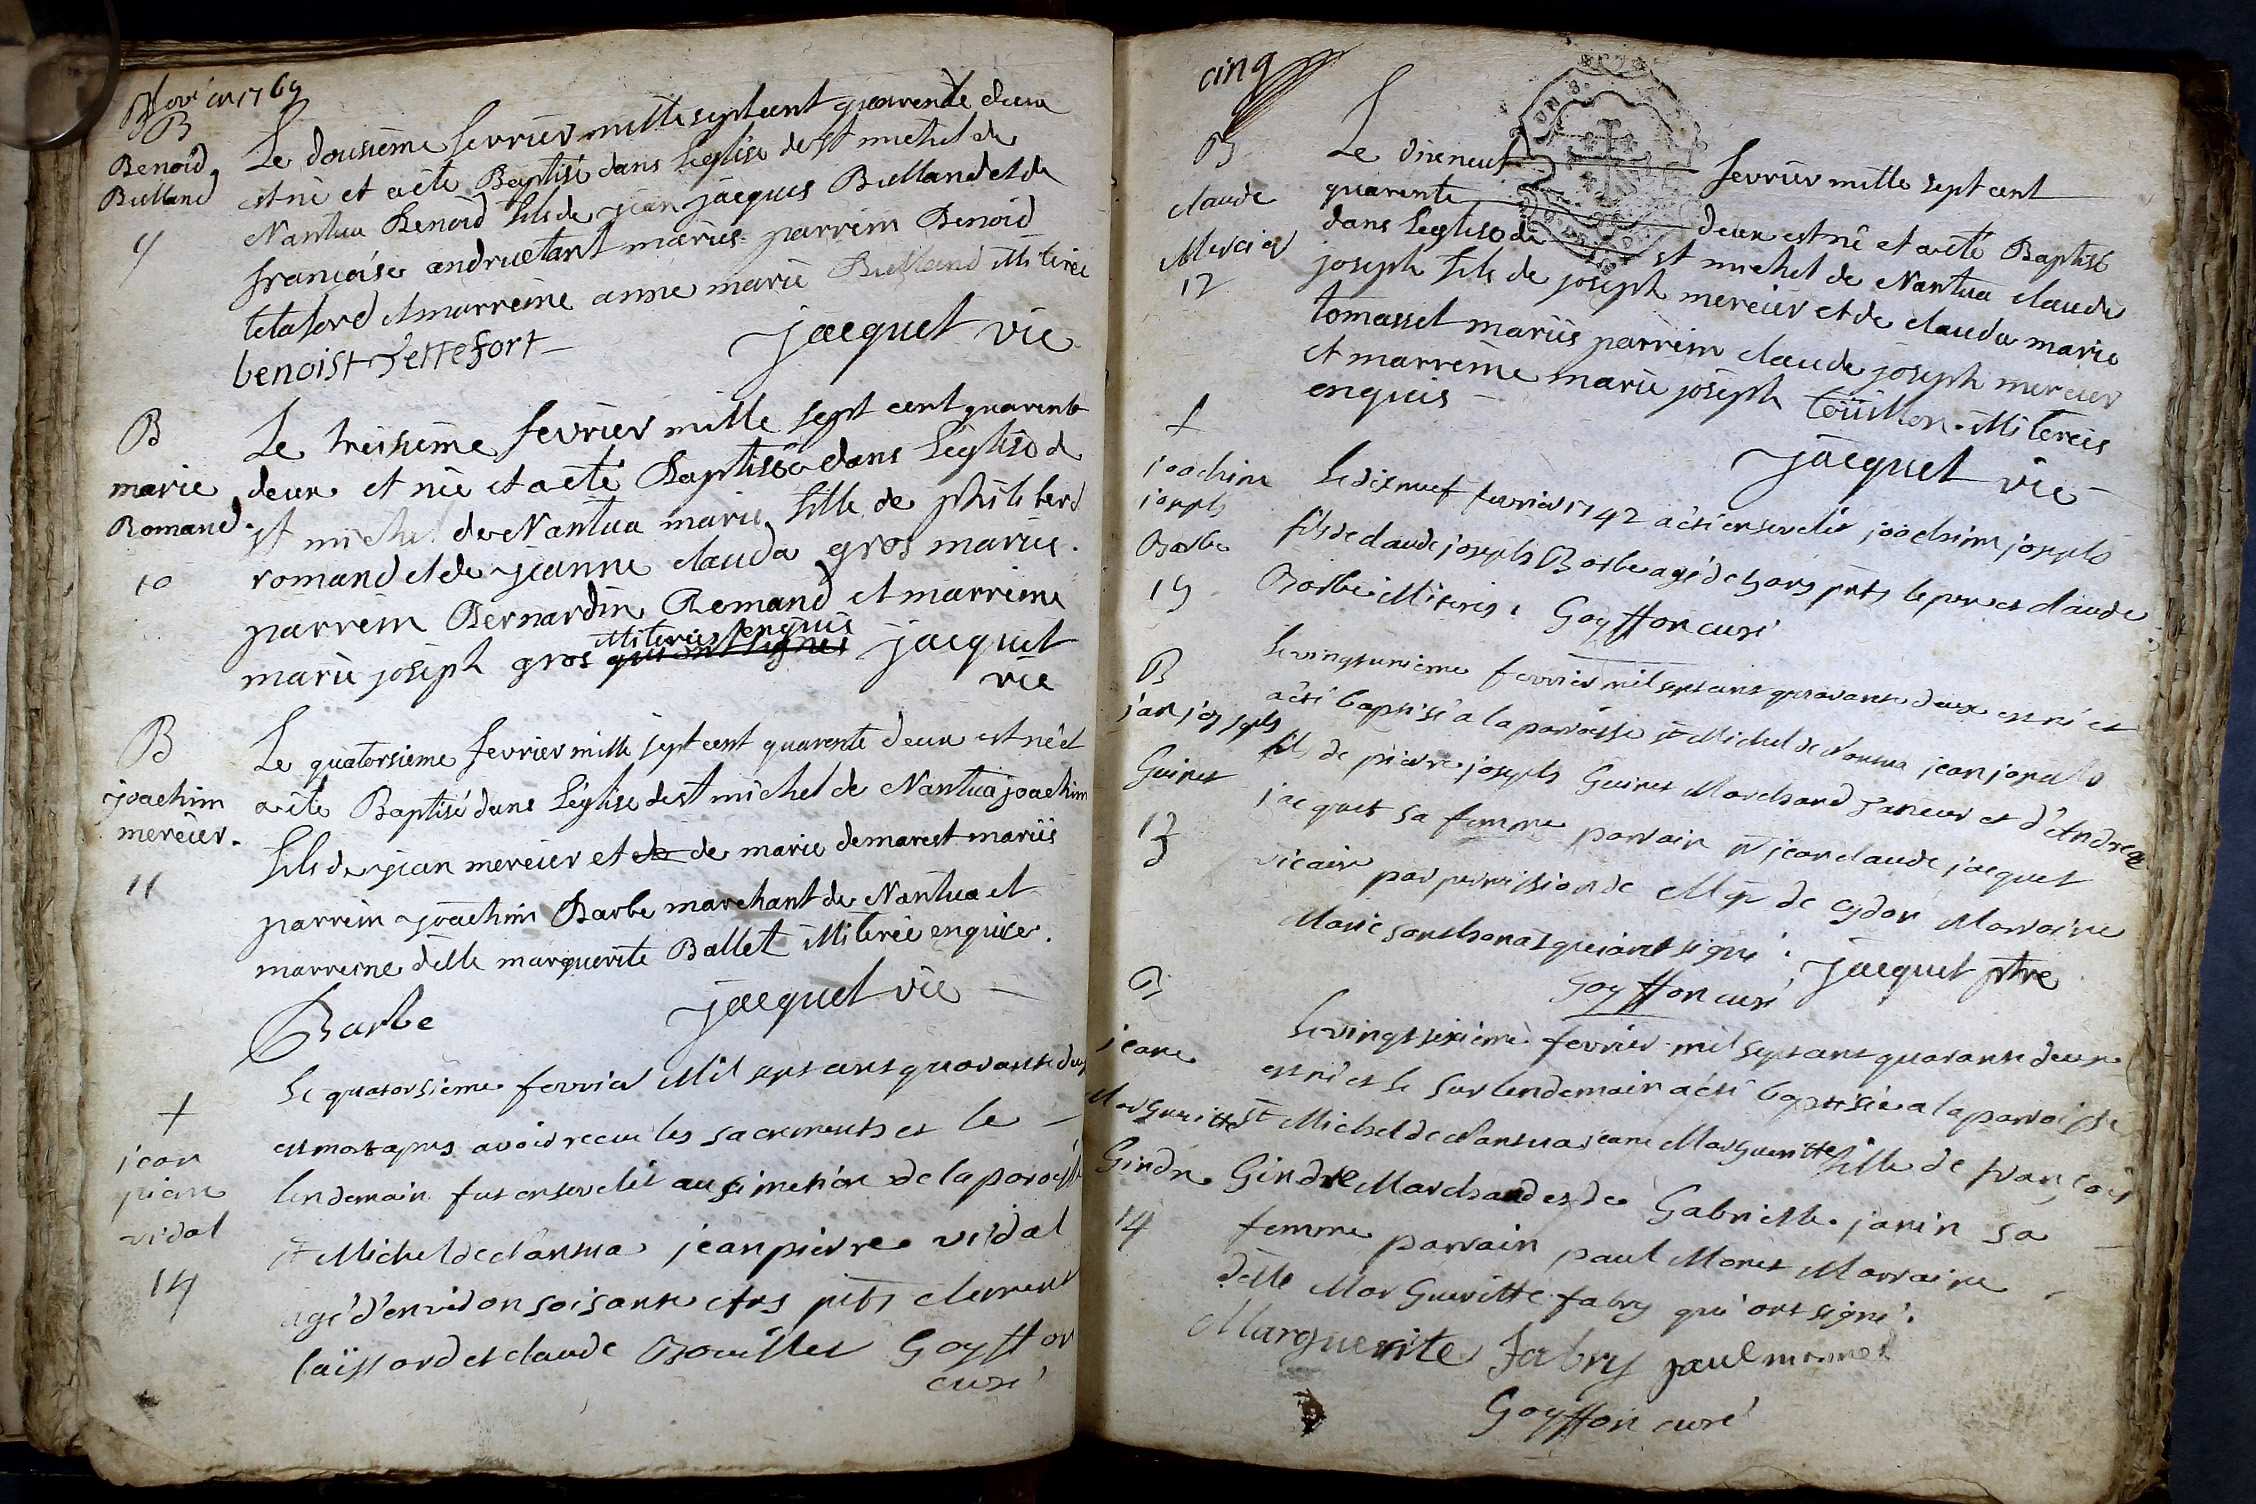 en 1769
B
Benoid
Bulland
9
Le dousième fevrier mille septcent quarente deux
est nè et aète Baptisé dans Leglise de st michel de
Nantua Benoid fils de jean jacques Bulland et de
francoise andruetant mariés parrein Benoid
tetaford et marreine anne marie Bulland illiterée
benoist tettefort
jacquet vic
B
marie
Romand
10
Le treisième fevrier mille sept cent quarente
deux et née et a èté Baptiséé dans Léglise de
st michel de Nantua marie fille de philiberd
romand et de jeanne clauda gros mariés.
parrein Bernardin Romand et marreine
marie joseph gros illiterès enquis jacquet
qui ont signés
vic
B
joachim
mercier.
11
Le quatorsieme fevrier mille sept cent quarente deux est né et
a èté Baptisé dans Léglise de st michel de Nantua joachim
fils de jean mercier et de de marie demarest mariis
parrein joachim Barbe marchant de Nantua et
marreine delle marguerite Ballet illiterée enquise.
Barbe
jacquet vic
+
jean
piere
vidal
14
Le quatorsième fevrier Mil sept cent quarante deux
est mort apres avoir receu les sacrements et le
lendemain fut enseveli au simetiere de la paroisse
st Michel de Nantua jean pierre vidal
agé d'environ soisante Ans pnts clement
laissard et claude Bouillet Goyffon
curé
cinq
B
claude
Mercier
12
Le dixneuf fevrier mille sept cent
quarente deux est né et aèté Baptisé
dans Leglise de st michel de Nantua claude
joseph fils de joseph mercier et de clauda marie
tomasset mariis parrein claude joseph mercier
et marreine marie joseph toüillon. illiterés
enquis
jacquet vic
+
joachim
joseph
Barbe
15
Le dixneuf fevrier 1742 a été enseveli joachim joseph
fils de claude joseph Barbe agé de 5 ans pnts le pere et claude
Barbe illiterés. Goyffon curé
B
jean joseph
Guinet
13
Le vingtunieme fevrier mil sept cent quarante deux est né et
a été baptisé a la paroisse st Michel de Nantua jean joseph
fils de pierre joseph Guinet Marchand taneur et d'Andrea
jacquet sa femme parrain mr jean claude jacquet
vicaire par permission de Mgr de Marraine
Marie qui ont signé. jacquet ptre
Goyffon curé
B
jeane
Margueritte
Gindre
14
Le vingt sixiéme fevrier mil sept cent quarante deux
est né et le surlendemain a été baptisée a la paroisse
st Michel de Nantua jeane Margueritte fille de françois
Gindre Marchand et de Gabrielle janin sa
femme parrain paul Monet Marraine
delle Margueritte fabry qui ont signé.
Marguerite Fabry paul monnet
Goyffon curé